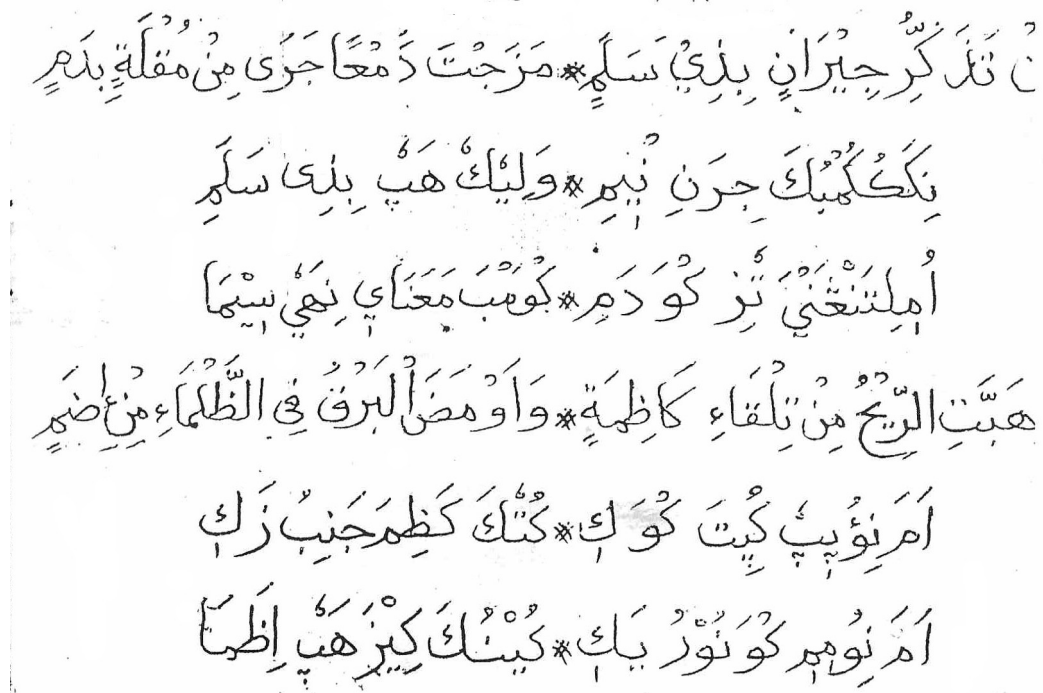 نْ تَذَكُّرِ جِيْرَانٍ بِذِيْ سَلَمٍ * مَزَجْتَ دَمْعًا جَرَى مِنْ مُقْلَةٍ بِدَمٍ
نِكَكُكُمْبُكَ جِرَنِ نْيٖمِ * وَلِيْكُ هَپٗ بِذِى سَلَمِ
اُمِلِتَنْغَنْيَ تٗزِ كُوَ دَمِ * كُوَمْبَ مَعَنَايٖ نِهَيٗ سٖيْمَا
هَبَّتِ الرِّيْحُ مِنْ تِلْقَاءِ كَاظِمَةٍ * وَاَوْمَضَ الْبَرْقُ فِي الظَّلْمَاءِ مِنْ اِضَمٍ
اَمَ نِؤُپٖپٗ كُپِيْتَ كُوَكٖ * كُتٗكَ كَظِمَ جَنِبُ زَكٖ
اَمَ نِوُمٖمٖ كُوَ نُوْرُ يَكٖ * كِيْزَ هَپٗ اِظَمَا